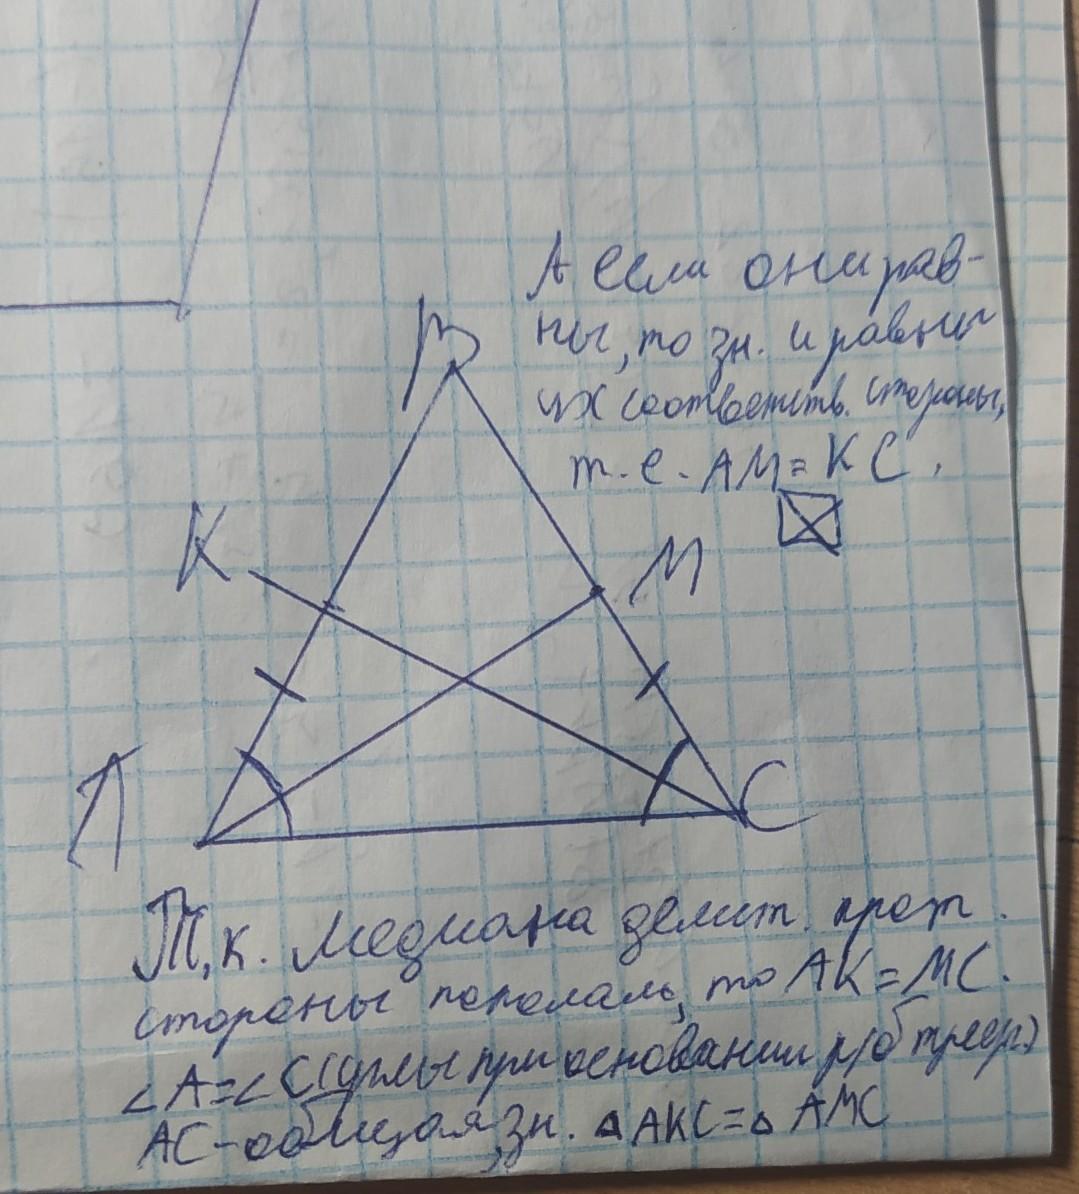 А если они рав-
ны, то зн. и равны
их соответств. стороны,
т.е. AM = KC.
B
K
M
A
C
Т.к. медиана делит прот.
стороны пополам, то AK = MC.
∠A=∠C (углы при основании р/б треуг.)
AC - общая, зн. △AKC=△AMC